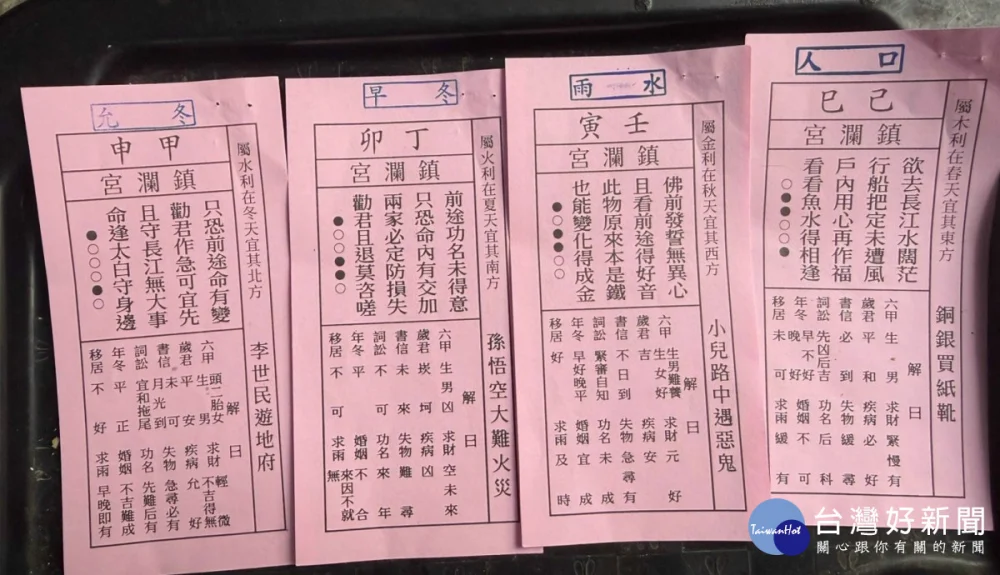 口人
己巳
鎮瀾宮
屬木利在春天宜其東方
欲去長江水闊茫
行船把定未遭風
戶內用心再作福
看看魚水得相逢
○●●○●●
銅銀買紙靴
解日
六甲生男 求財緊慢有
歲君平和 疾病必好
書信必到 失物緩尋
詞訟先凶后吉 功名后科
年冬早不好晚好 婚姻不可
移居未可 求雨緩有
水雨
壬寅
鎮瀾宮
屬金利在秋天宜其西方
佛前發誓無異心
且看前途得好音
此物原來本是鐵
也能變化得成金
●○○●○○
小兒路中遇惡鬼
解日
六甲生男難養生女好 求財元好
歲君吉 疾病安
書信不日到 失物急尋有
詞訟緊審自知 功名未成
年冬早好晚平 婚姻宜成
移居好 求雨及時
冬早
丁卯
鎮瀾宮
屬火利在夏天宜其南方
前途功名未得意
只恐命內有交加
兩家必定防損失
勸君且退莫咨嗟
●○○●●○
孫悟空大難火災
解日
六甲生男凶 求財空未來
歲君崁坷 疾病凶
書信未來 失物難尋
詞訟不可 功名來年
年冬平 婚姻不合
移居不可 求雨無來因不就
冬允
甲申
鎮瀾宮
屬水利在冬天宜其北方
只恐前途命有變
勸君作急可宜先
且守長江無大事
命逢太白守身邊
●○○○●○
李世民遊地府
解日
六甲頭二胎女生男 求財輕微不吉得無
歲君平安 疾病允好
書信未月光到可 失物急尋必有
詞訟宜和拖尾 功名先難后有
年冬平正 婚姻不吉難成
移居不好 求雨早晚即有
TaiwanHot
台灣好新聞
關心跟你有關的新聞